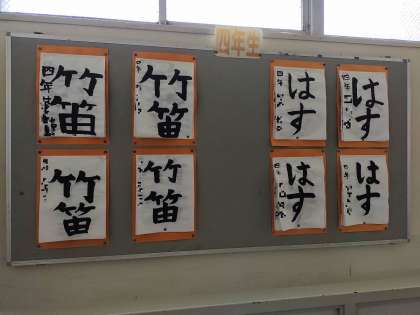 四年生
竹笛
四年
竹笛
はす
はす
竹笛
竹笛
はす
はす